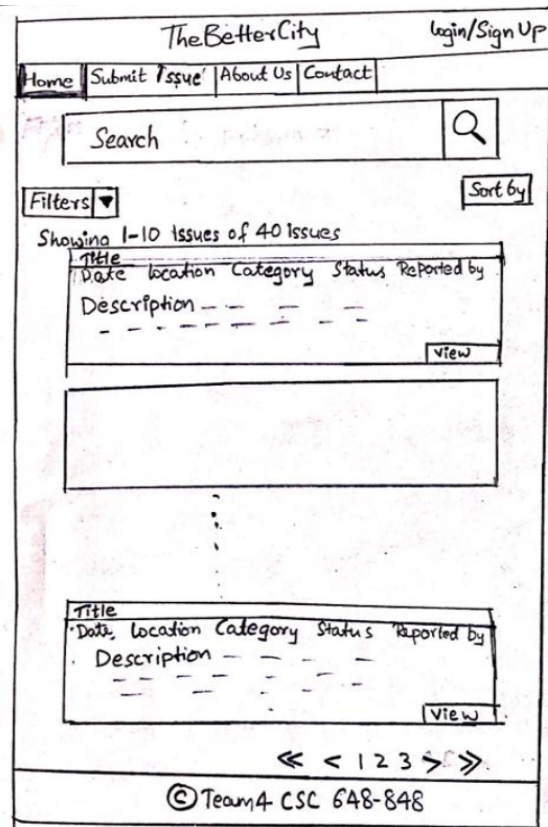 TheBetterCity login/Sign Up
Home Submit 'Issue' About Us Contact
Search
Filters ▼ Sort by
Showing 1-10 Issues of 40 Issues
Title
Date location Category Status Reported by
Description
View
Title
Date, location Category Status Reported by
Description
View
≪ < 1 2 3 > ≫
© Team 4 CSC 648-848